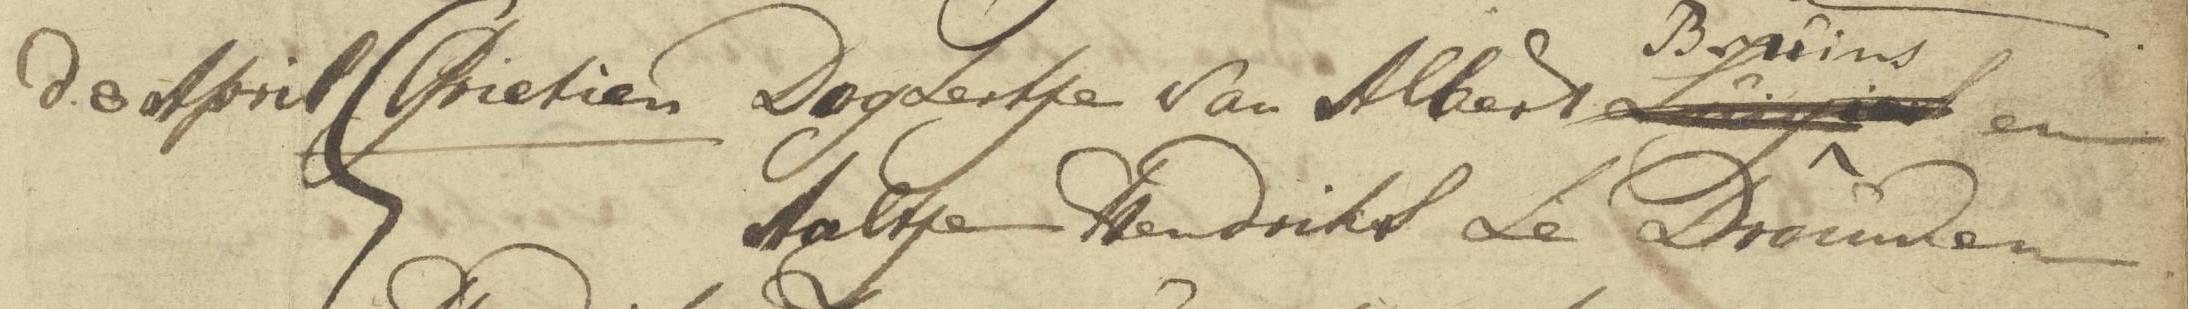 Bruins
d. 8 April Grietien Dogtertje van Albert en
Aaltje Hendriks te Drouwen